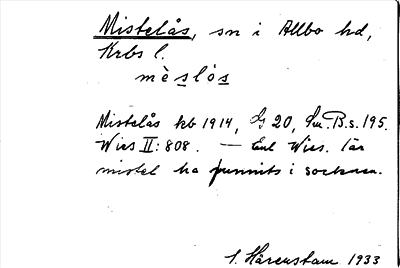 Mistelås, sn i Allbo hd,
Krbs l.
mèslós
Mistelås kb 1914, G 20, Sm. B. s. 195.
Wies II: 808. — Enl Wies. lär
mistel ha funnits i socknen.
S. Hårenstam 1933